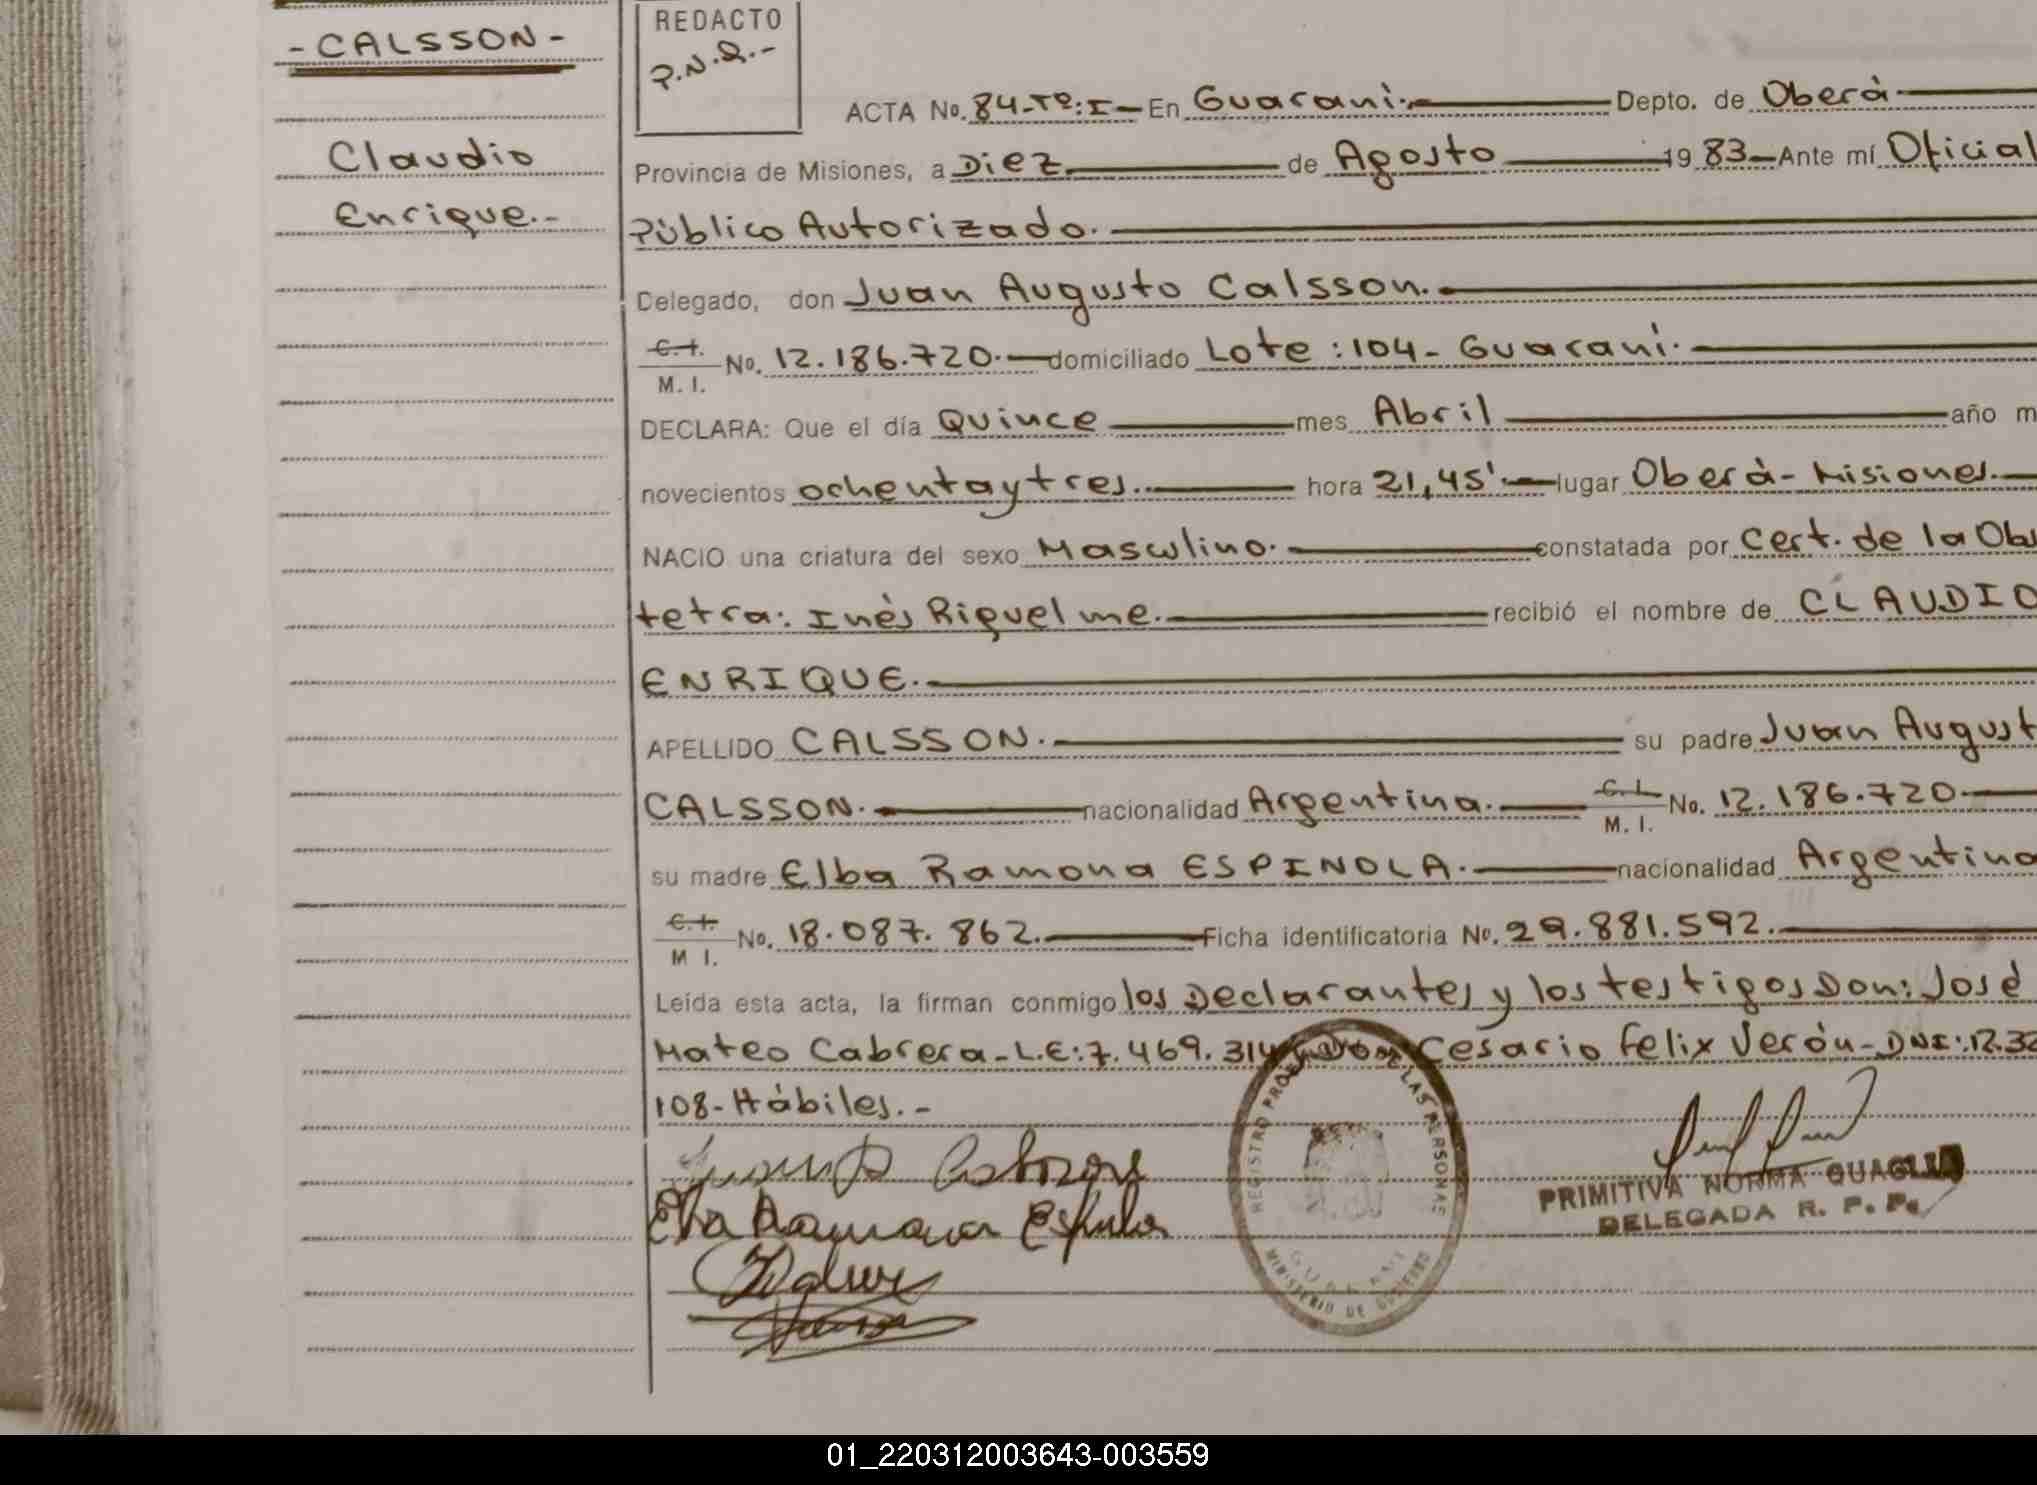 -CALSSON-
Claudio
Enrique.-
REDACTO
P.N.Q.-
ACTA No. 84-Tº:I- En Guaraní.- Depto. de Oberá
Provincia de Misiones, a Diez de Agosto 19 83 Ante mí Oficial
Público Autorizado.
Delegado, don Juan Augusto Calsson.
C.I. M.I. No. 12.186.720.- domiciliado Lote:104- Guaraní.
DECLARA: Que el día Quince mes Abril año m
novecientos ochentaytres. hora 21,45' lugar Oberá-Misiones.
NACIO una criatura del sexo Masculino. constatada por Cert. de la Obs
tetra: Inés Riquelme. recibió el nombre de CLAUDIO
ENRIQUE.
APELLIDO CALSSON. su padre Juan August
CALSSON. nacionalidad Argentina. C.I. M.I. No. 12.186.720
su madre Elba Ramona ESPINOLA. nacionalidad Argentina
C.I. M I. No. 18.087.862. Ficha identificatoria No. 29.881.592.
Leída esta acta, la firman conmigo los Declarantes y los testigos Don: José
Mateo Cabrera-L.E:7.469.314 Don: Cesario Felix Verón-DNI:.12.32
108-Hábiles.-
Elba Ramona Espinola
REGISTRO PROVINCIAL DE LAS PERSONAS
GUARANI
MINISTERIO DE GOBIERNO
PRIMITIVA NORMA QUAGLIA
DELEGADA R. P. P.
01_220312003643-003559